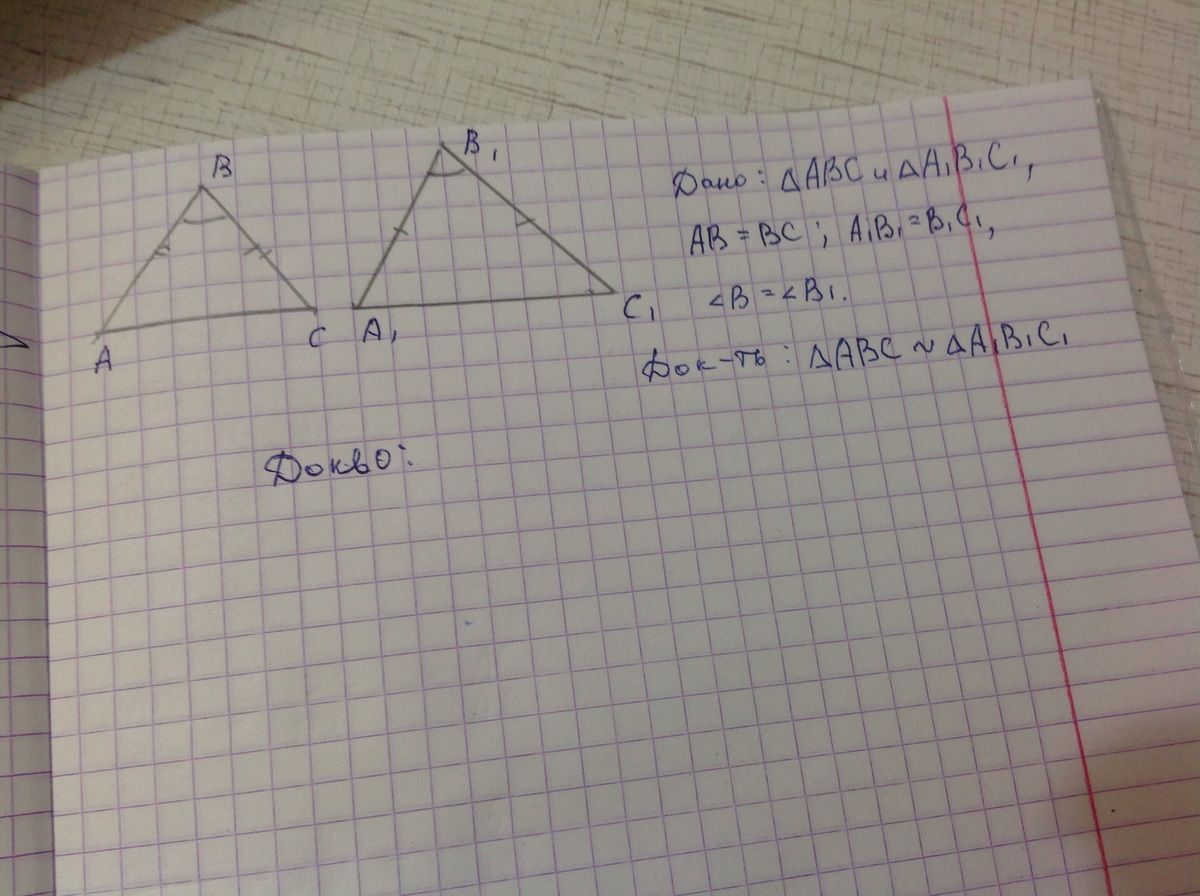 B
B₁
A
C
A₁
C₁
Дано: ΔABC и ΔA₁B₁C₁,
AB = BC; A₁B₁ = B₁C₁,
∠B = ∠B₁.
Док-ть: ΔABC ~ ΔA₁B₁C₁
Доквo: